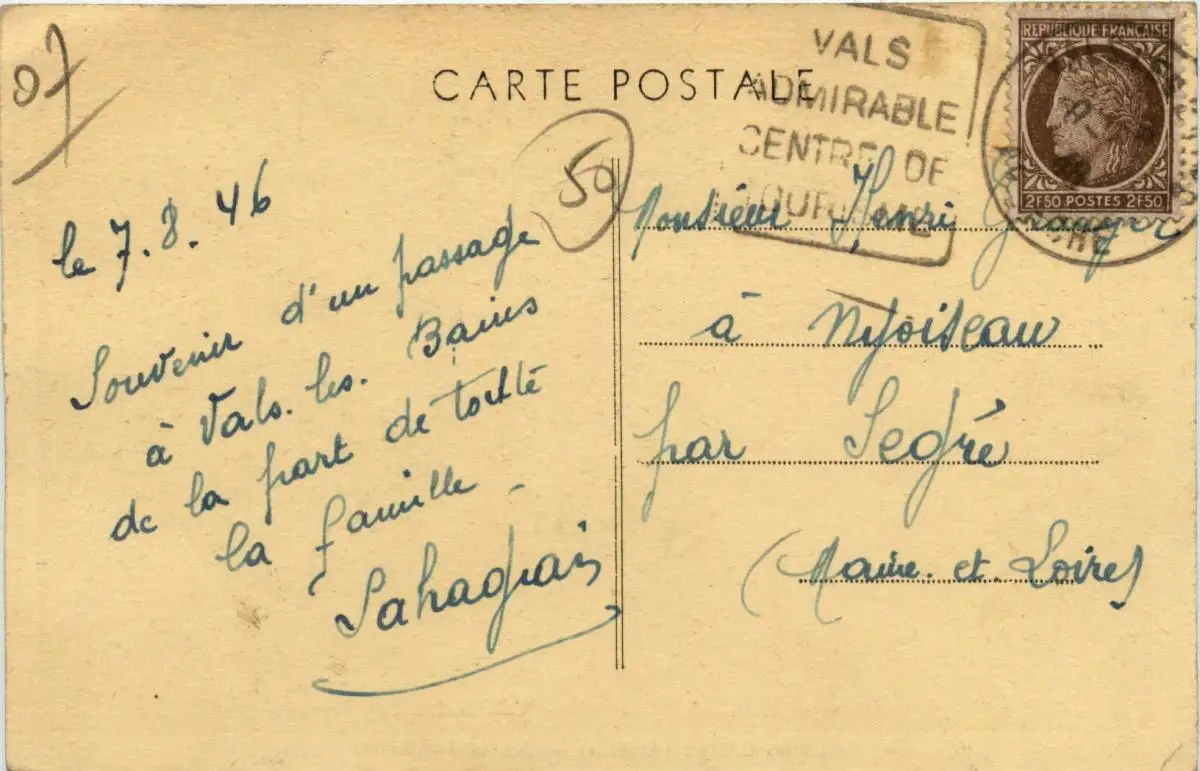 07
CARTE POSTALE
VALS
ADMIRABLE
CENTRE DE
TOURISME
REPUBLIQUE FRANÇAISE
2F50 POSTES 2F50
ARDECHE
50
le 7.8.46
Souvenir d'un passage
à Vals. les. Bains
de la part de toute
la famille -
Monsieur Henri
à Nyoiseau
par Segré
(Maine. et. Loire)